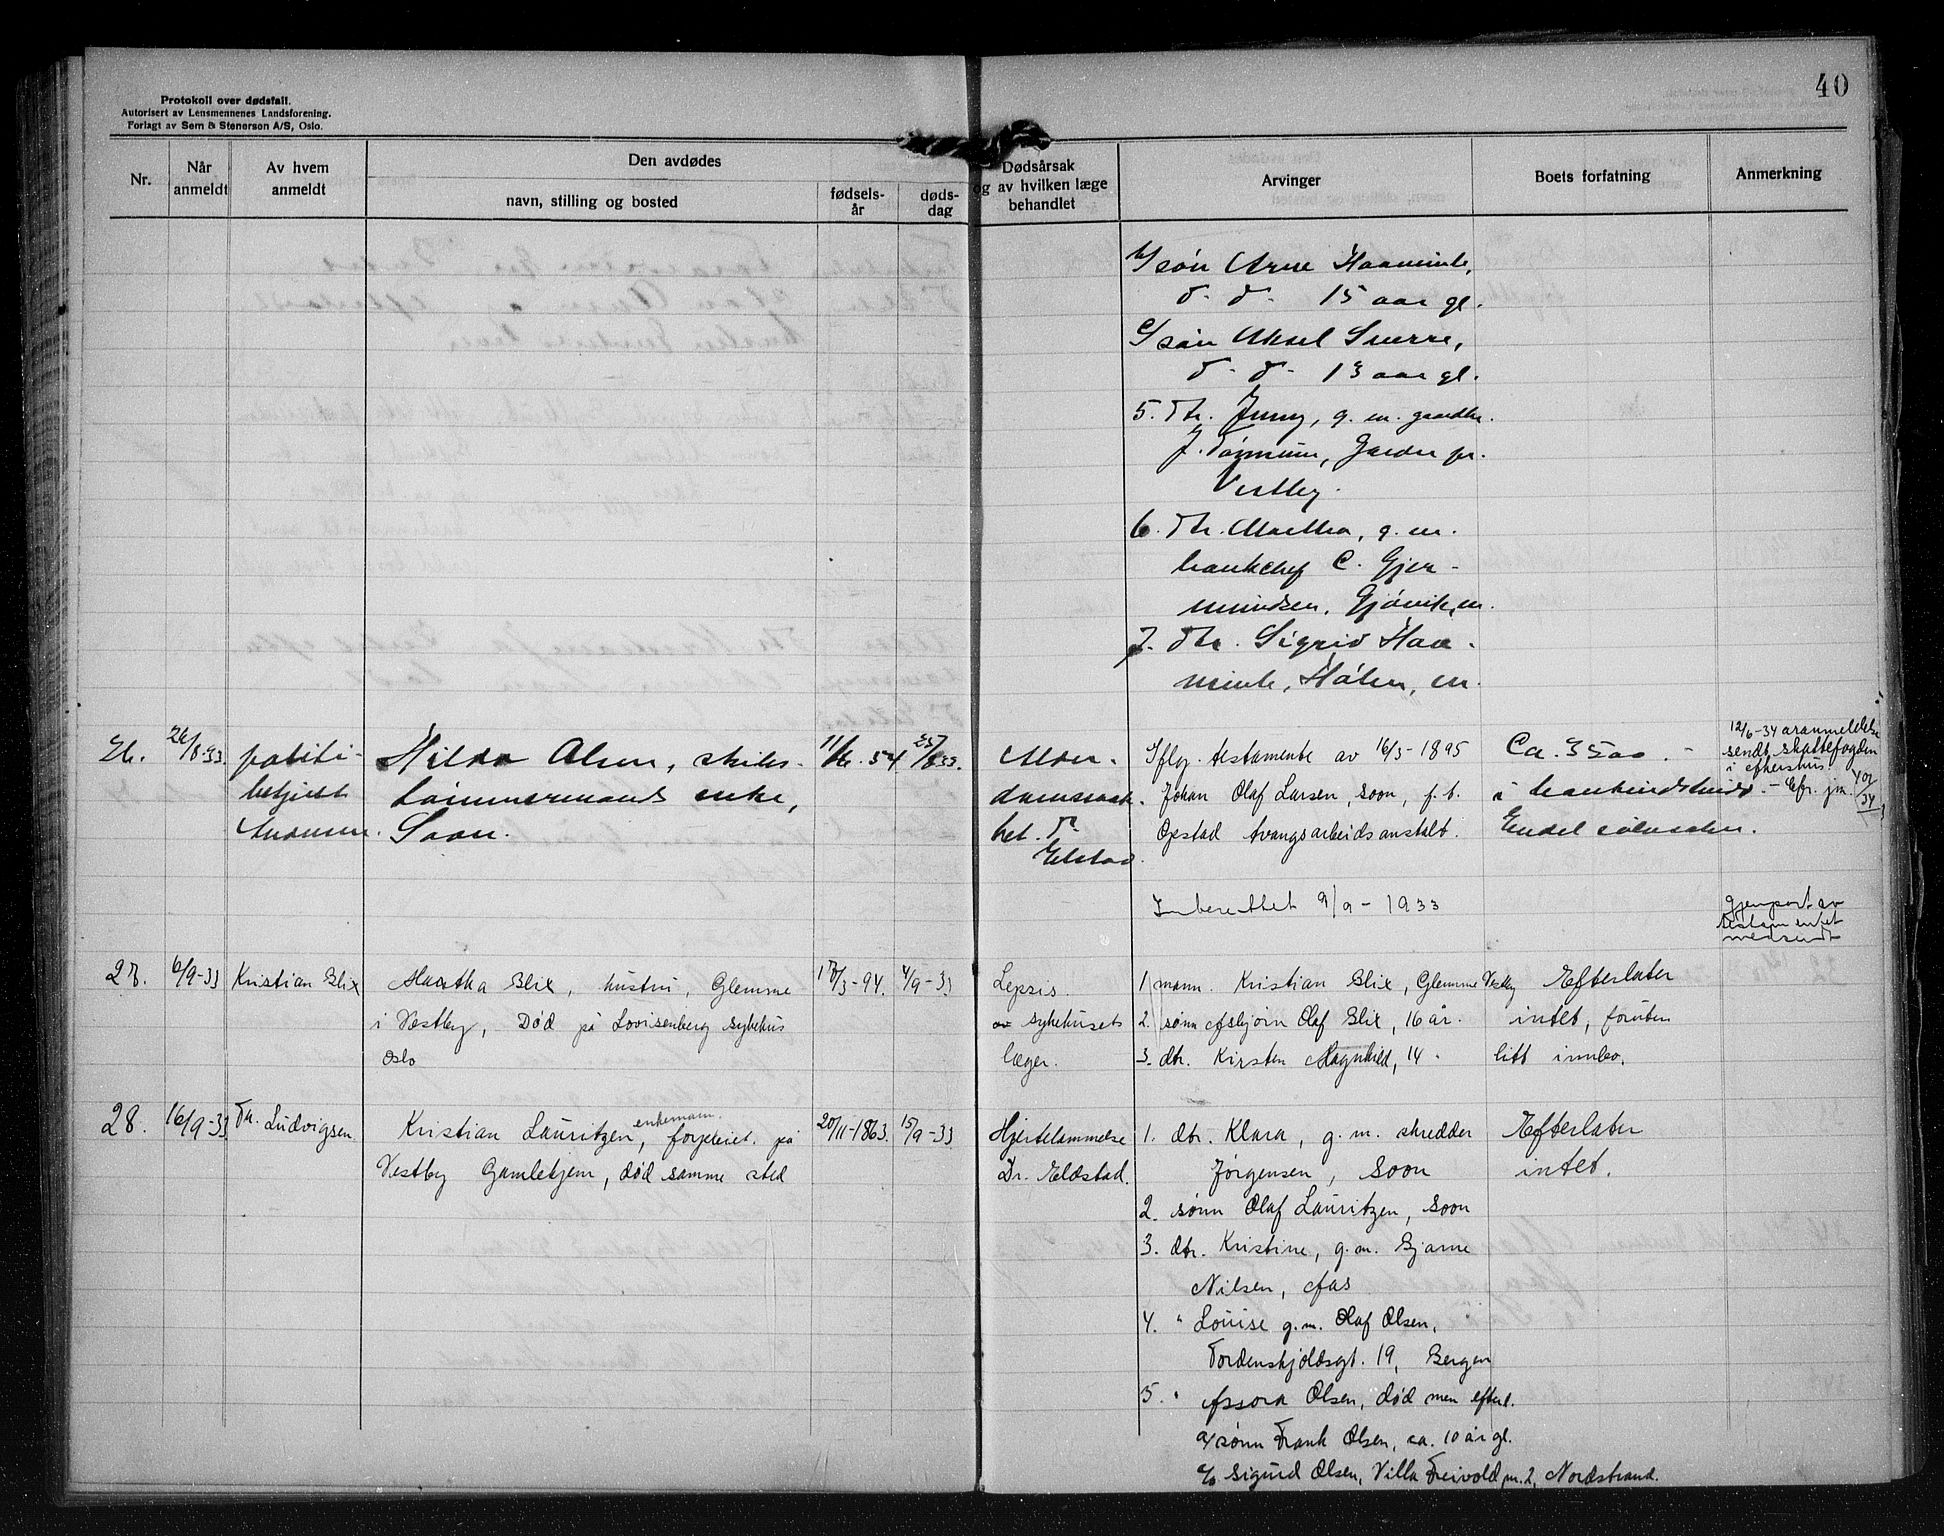 40
Protokoll over dødsfall.
Autorisert av Lensmennenes Landsforening.
Forlagt av Sem & Stenersen A/S, Oslo.
Nr.
Når anmeldt
Av hvem anmeldt
Den avdødes
navn, stilling og bosted
fødselsår
dødsdag
Dødsårsak
og av hvilken læge
behandlet
Arvinger
Boets forfatning
Anmerkning
b/ søn Arne
d. d. 15 aar gl.
c/ søn Aksel Sverre,
d. d. 13 aar gl.
5. dtr. Jenny, g. m. gaardbr.
J. Garder pr.
Vestby.
6. dtr. Martha, g. m.
bankchef C. Gjer-
mundsen, Gjøvik, m.
7. dtr. Sigrid Haa-
Hølen, m.
26. 26/8-33 politi-
betjent
Hilda Olsen, skibs-
tømmermands enke,
Soon.
54 25/8 33.
Alder-
domssvak-
het. Dr.
Elstad.
Iflg. testamente av 16/3-1895
Johan Olaf Larsen, Soon, f.t.
Opstad tvangsarbeidsanstalt.
Inberettet 9/9-1933
Ca. 3500.-
i bankindskudd.
Endel
12/6-34
sendt skattefogden
i Akershus.
- Cfr. jn.
gjenpart av
testamentet
medsendt
27. 6/9-33 Kristian Blix
Martha Blix, hustru, Glemme
i Vestby, Død på Lovisenberg sykehus
Oslo
17/3-94. 4/9-33
Lepsis.
av sykehusets
læger.
1 mann. Kristian Blix, Glemme Vestby
2. sønn Asbjørn Olaf Blix, 16 år.
3. dtr. Kirsten Magnhild, 14 -
Efterlater
intet, foruten
litt innbo.
28. 16/9-33 Fa. Ludvigsen
enkemann.
Kristian Lauritzen, forpleiet på
Vestby Gamlehjem, død samme sted
20/11-1863. 15/9-33
Hjertelammelse
Dr. Eldstad.
1. dtr. Klara, g. m. skredder
Jørgensen, Soon
2. sønn Olaf Lauritzen, Soon
3. dtr. Kristine, g. m. Bjarne
Nilsen, Ås
4. " Louise g. m. Olaf Olsen,
Tordenskjoldsgt. 19, Bergen
5. " Assora Olsen, død men efterl.
a/ sønn Frank Olsen, ca. 10 år gl.
c/o Sigurd Olsen, Villa Freivold, Nordstrand.
Efterlater
intet.